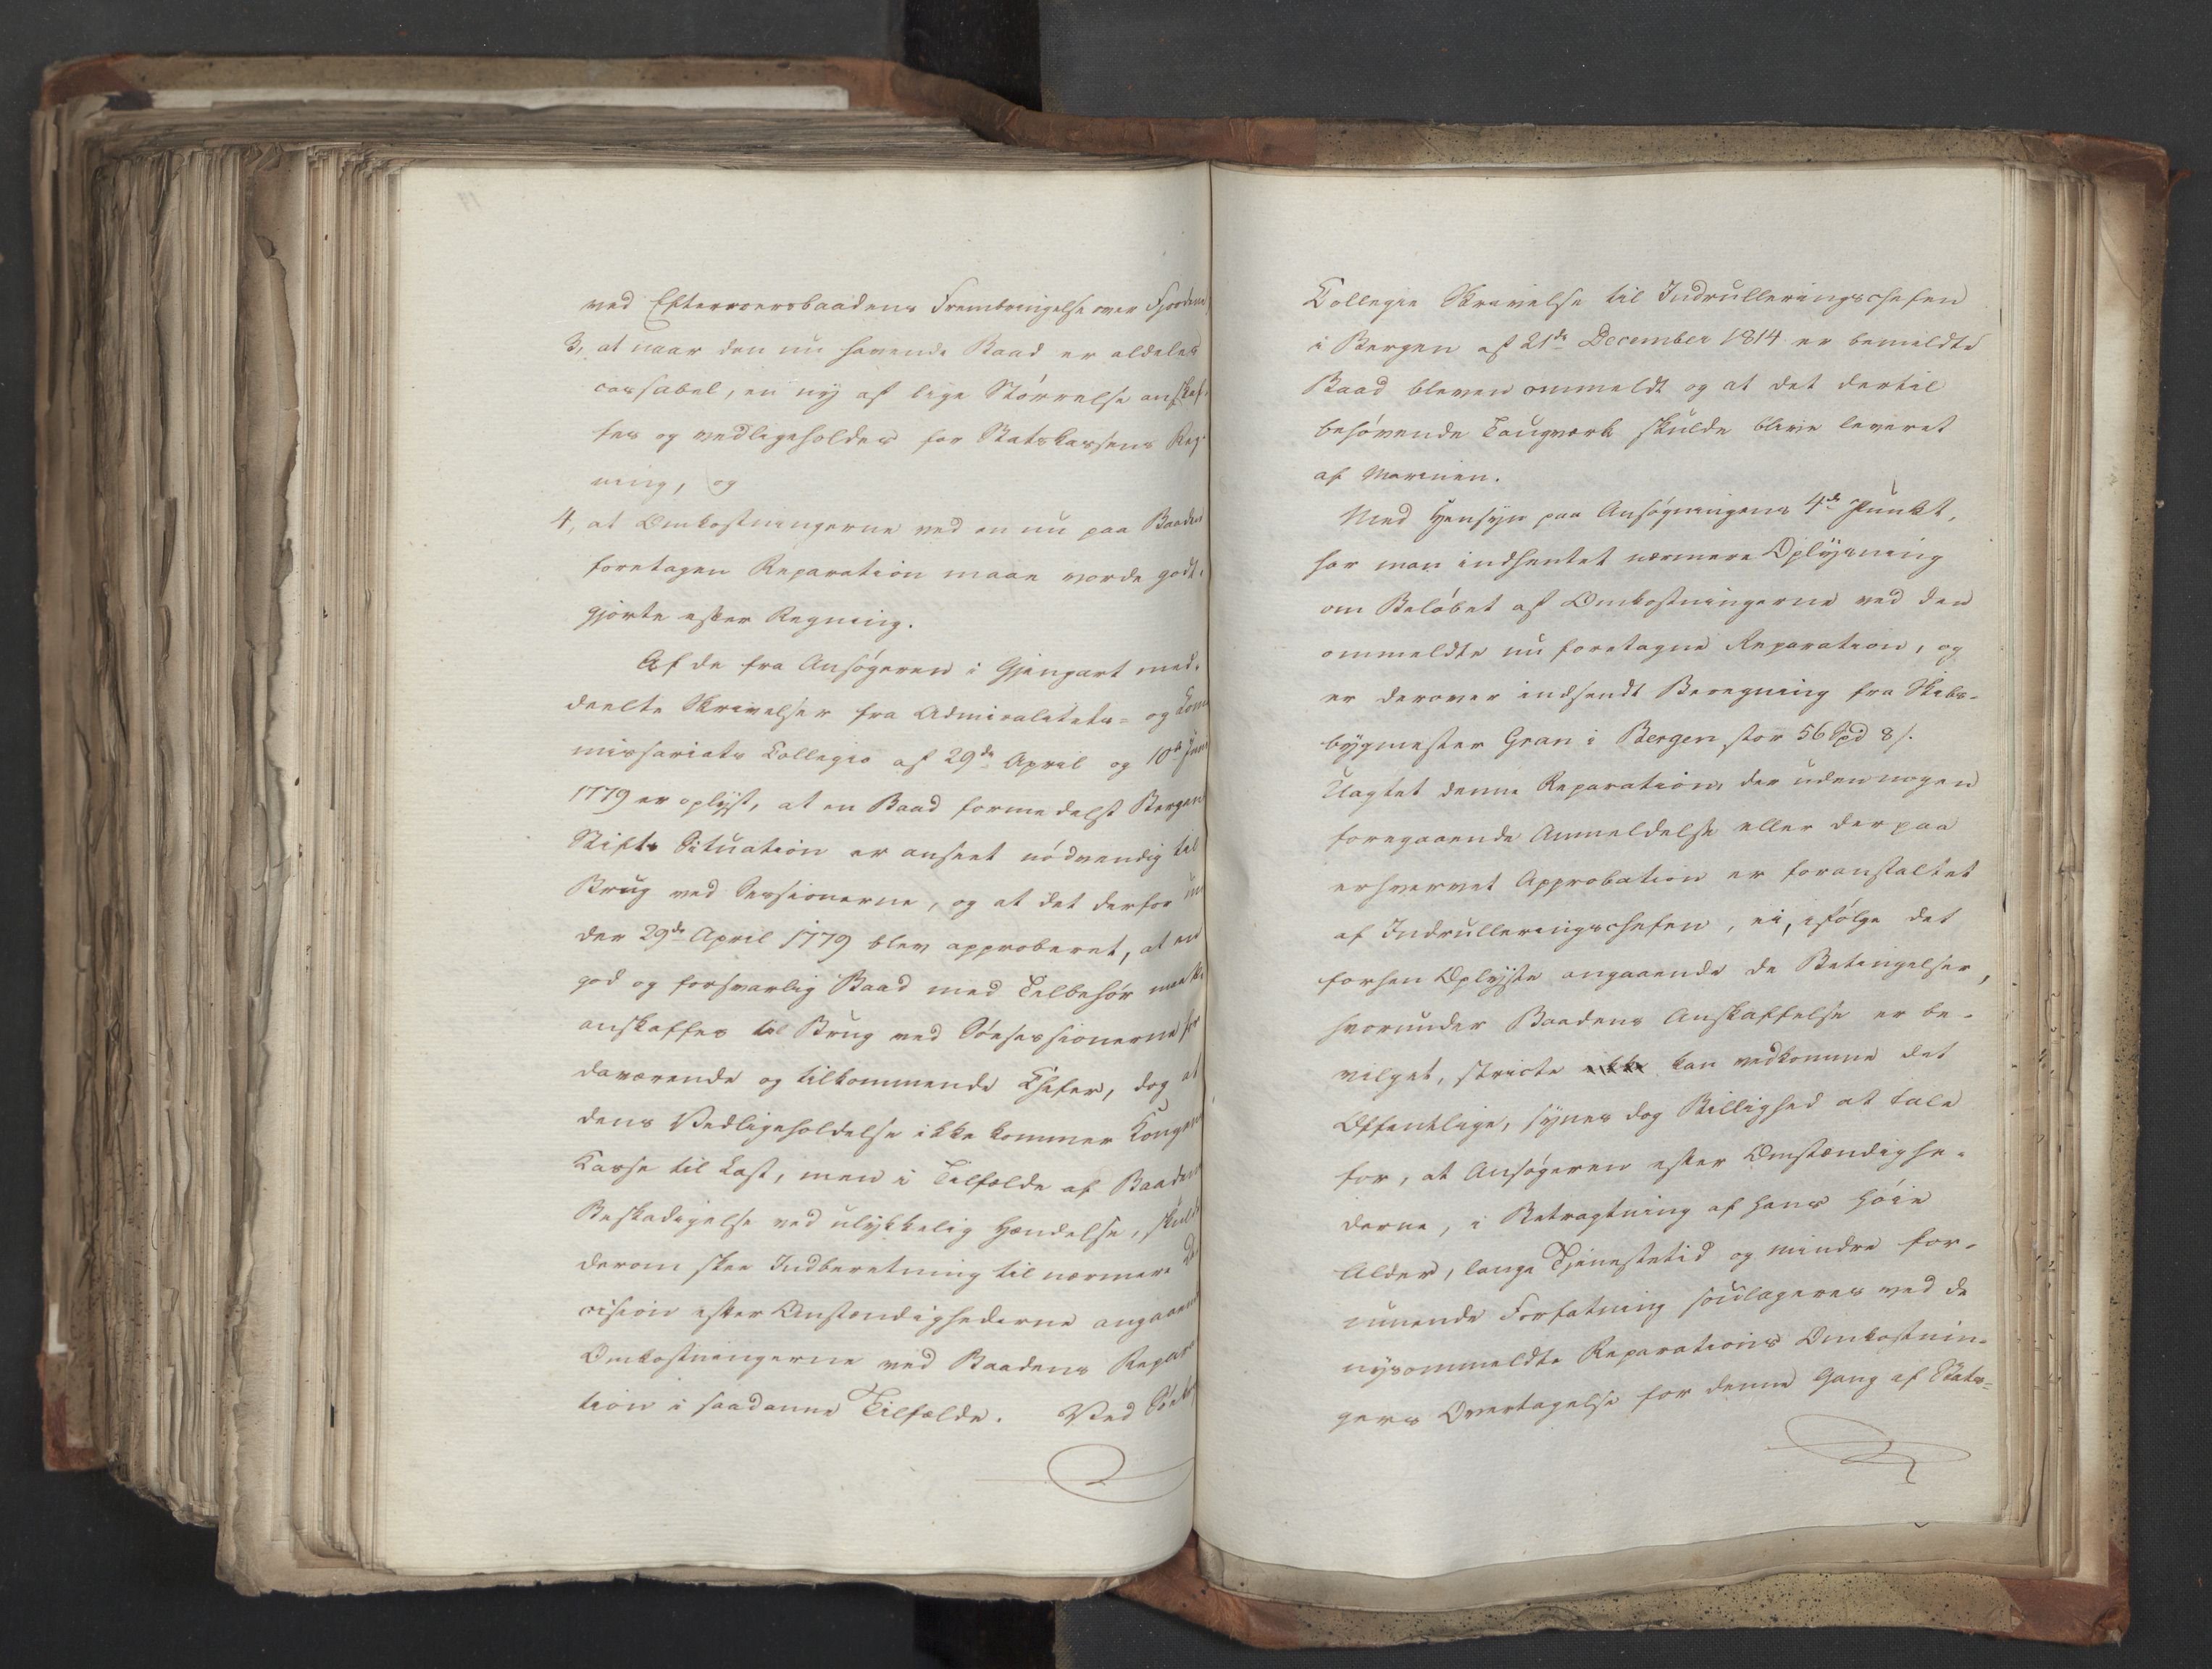 ved Efterroersbaadens Frembringelse over Fjordene,
3, at naar den nu havende Baad er aldeles
cassabel, en ny af lige Störrelse anskaf-
fes og vedligeholdes for Statskassens Reg-
ning, og
4, at Omkostningerne ved en nu paa Baaden
foretagen Reparation maae vorde godt-
gjorte efter Regning.
Af de fra Ansögeren i Gjenpart med-
deelte Skrivelser fra Admiralitets- og Com
missariats Collegio af 29de April og 10de Juni
1779 er oplyst, at en Baad formedelst Bergens
Stifts Situation er anseet nödvendig til
Brug ved Sessionerne, og at det derfor un
der 29de April 1779 blev approberet, at en
god og forsvarlig Baad med Tilbehör maatte
anskaffes til Brug ved Söesessionerne for
daværende og tilkommende Chefer, dog at
dens Vedligeholdelse ikke kommer Kongens
Casse til Last, men i Tilfælde af Baadens
Beskadigelse ved ulykkelig Hændelse, skulde
derom skee Indberetning til nærmere De
cision efter Omstændighederne angaaende
Omkostningerne ved Baadens Repara
tion i saadanne Tilfælde. Ved
Collegie Skrivelse til Indrulleringschefen
i Bergen af 21de December 1814 er bemeldte
Baad bleven ommeldt og at det dertil
behövende Taugværk skulde blive leveret
af Marinen.
Med Hensyn paa Ansögningens 4de Punkt,
har man indhentet nærmere Oplysning
om Belöbet af Omkostningerne ved den
ommeldte nu foretagne Reparation, og
er derover indsendt Beregning fra Skibs-
bygmester Gran i Bergen stor 56 Spd 8 s.
Uagtet denne Reparation, der uden nogen
foregaaende Anmeldelse eller derpaa
erhvervet Approbation er foranstaltet
af Indrulleringschefen, ei, ifölge det
forhen Oplyste angaaende de Betingelser,
hvorunder Baadens Anskaffelse er be-
vilget, stricte ikke kan vedkomme det
Offentlige, synes dog Billighed at tale
for, at Ansögeren efter Omstændighe-
derne, i Betragtning af hans höie
Alder, lange Tjenestetid og mindre for-
muende Forfatning soulageres ved de
nysommeldte Reparations Omkostnin-
gers Overtagelse for denne Gang af Stats-